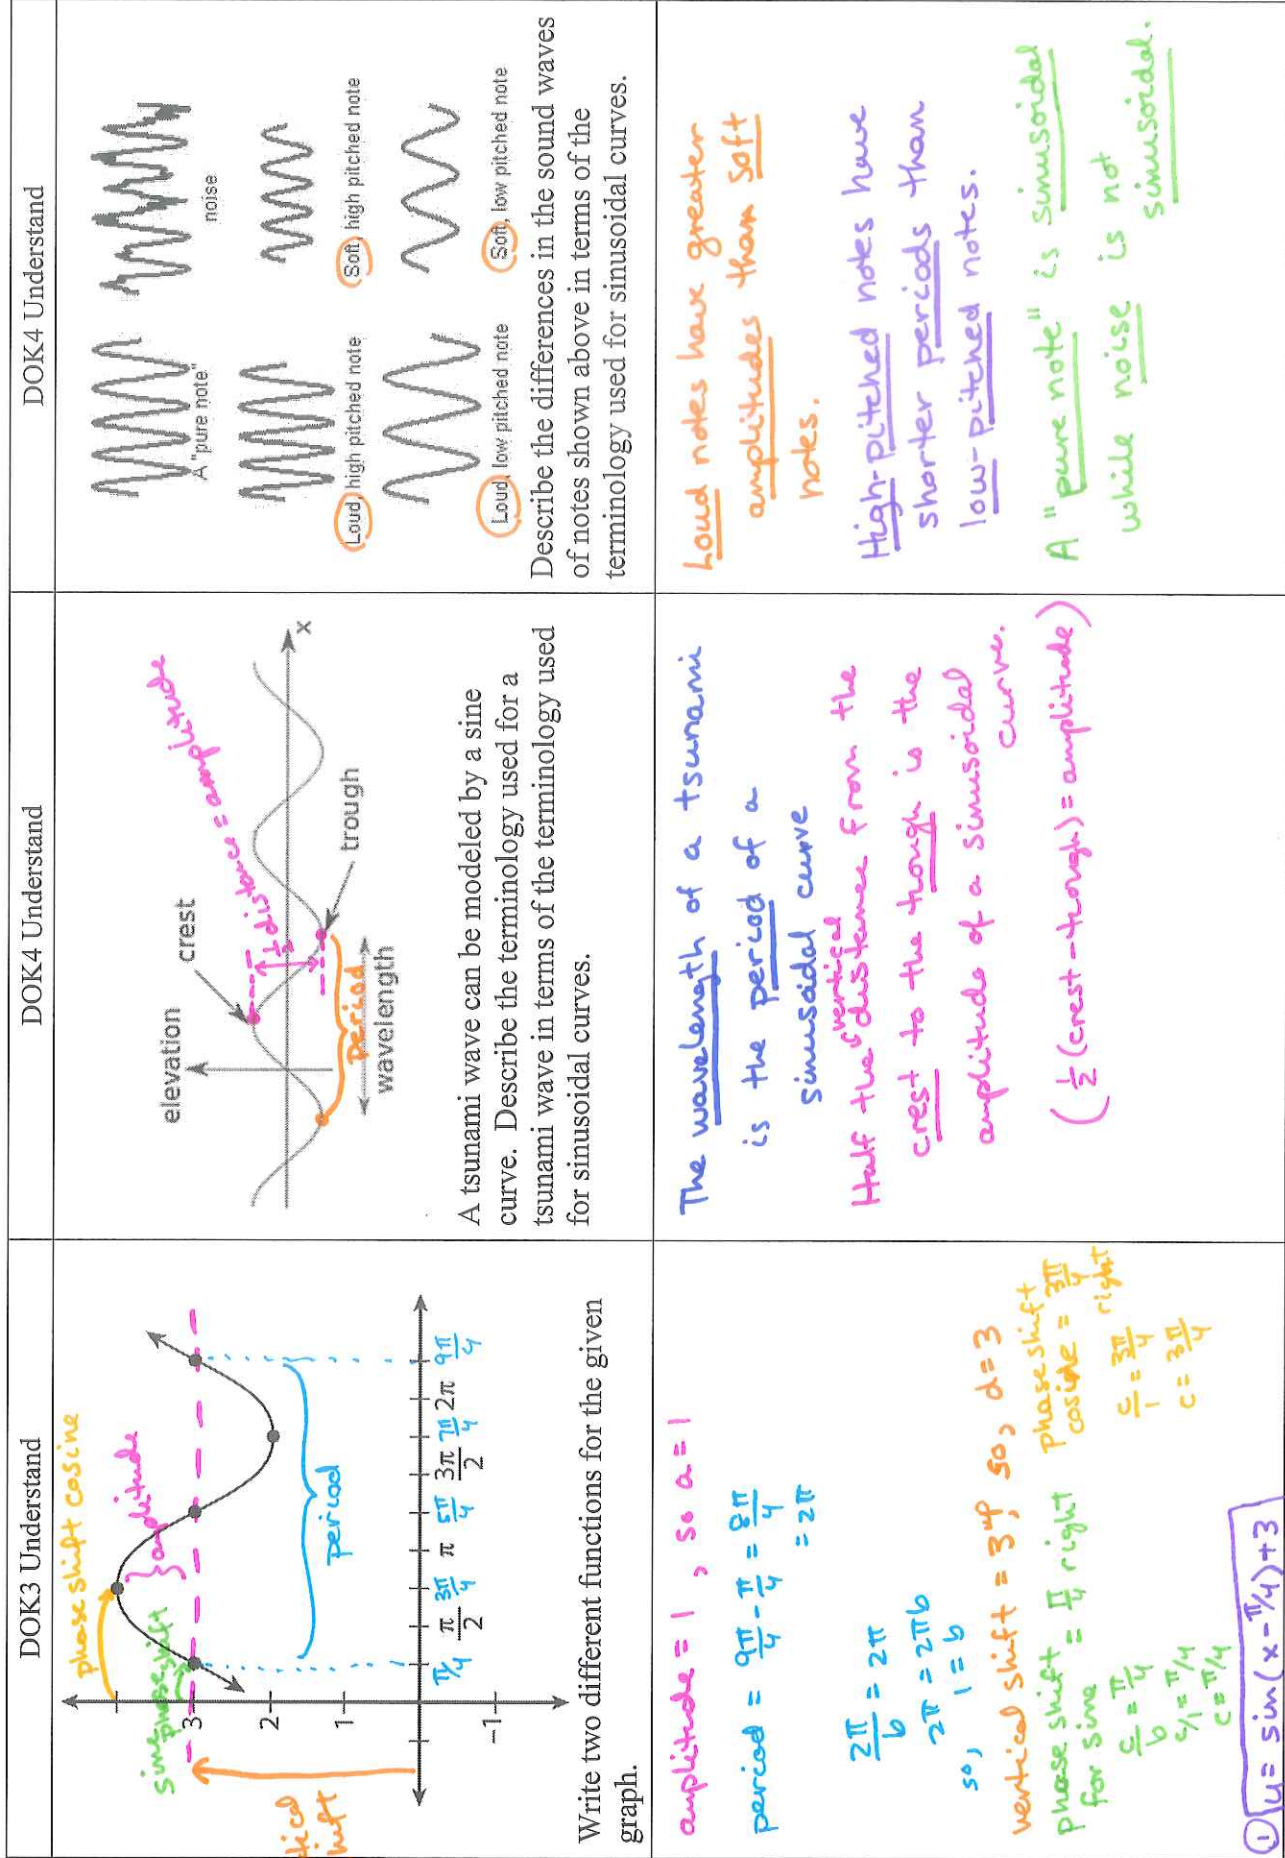 DOK3 Understand
phase shift cosine
sine phase shift
} amplitude
3
2
1
-1
π/4 π/2 3π/4 π 5π/4 3π/2 7π/4 2π 9π/4
period
Write two different functions for the given
graph.
amplitude = 1, so a = 1
period = 9π/4 - π/4 = 8π/4
= 2π
2π/b = 2π
2π = 2πb
so, 1 = b
vertical shift = 3 up, so, d = 3
phase shift = π/4 right
for sine
c/b = π/4
c/1 = π/4
c = π/4
phase shift
cosine = 3π/4
right
c/1 = 3π/4
c = 3π/4
① y = sin(x - π/4) + 3
DOK4 Understand
elevation
crest
½ distance = amplitude
x
trough
period
wavelength
A tsunami wave can be modeled by a sine
curve. Describe the terminology used for a
tsunami wave in terms of the terminology used
for sinusoidal curves.
The wavelength of a tsunami
is the period of a
sinusoidal curve
Half the vertical distance from the
crest to the trough is the
amplitude of a sinusoidal
curve.
(½ (crest - trough) = amplitude)
DOK4 Understand
A "pure note"
noise
Loud, high pitched note
Soft, high pitched note
Loud, low pitched note
Soft, low pitched note
Describe the differences in the sound waves
of notes shown above in terms of the
terminology used for sinusoidal curves.
Loud notes have greater
amplitudes than soft
notes.
High-pitched notes have
shorter periods than
low-pitched notes.
A "pure note" is sinusoidal
while noise is not
sinusoidal.